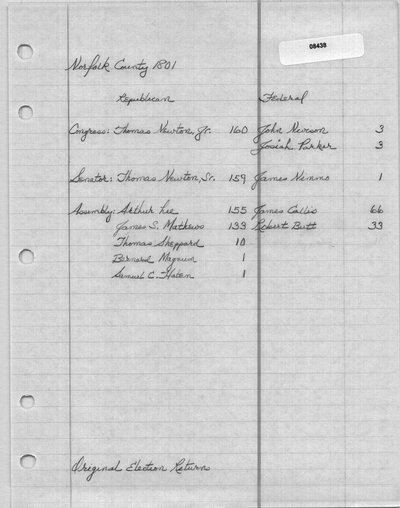 08438
Norfolk County 1801
Republican Federal
Congress: Thomas Newton, Jr. 160 John Nevison 3
Josiah Parker 3
Senator: Thomas Newton, Sr. 159 James Nimmo 1
Assembly: Arthur Lee 155 James Callis 66
James S. Mathews 133 Robert Butt 33
Thomas Sheppard 10
Bernard Magnum 1
Samuel C. 1
Original Election Returns